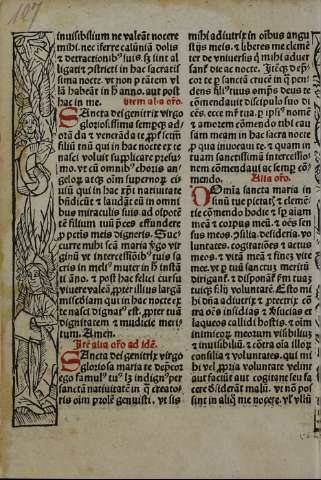 127
inuisibilium ne valeant nocere
mihi. nec iferre calũniã dolis
et detractionibꝰ suis. sꝫ sint al
ligati ⁊ stricti in hac sacratis
sima nocte. vt non ptãtem vl
lã habeãt in hⁱ anno. aut post
hac in me. Item alia oro.
Sancta dei genitrix virgo
gloriosissima semperꝙ ad
orã da ⁊ venerãda te
filium tuũ qui in hac nocte ex te
nasci voluit supplicare presu
mo. vt cũ omnibꝰ choris an
geloꝝ atꝙ oĩm supernoꝝ ci
uiũ qui in hac xp̃i natiuitate
bñdicũt ⁊ laudãt eũ in omni
bus miraculis suis
filium tuũ preces effundere
petis meis digneris. Suc
curre mihi scã maria virgo vir
ginũ vt intercessionibꝰ tuis sa
cris in melius muter in
ĩ ãno. ⁊ post hac felici cursu
viuere valeã largã
miseđiam qui in hac nocte ex
te nasci dignatꝰ est. tuã
dignitatem ⁊ mudicie meri
tum. Amen.
Itẽ alia oro ad idẽ.
Sancta dei genitrix virgo
gloriosa maria te deprecor
ego famulꝰ tuꝰ lꝫ indignꝰ per
sanctã natiuitatẽ in q̃ creatoꝝ
oim prole genuisti. vt sis
mihi adiutrix in oĩbus angu
stijs meis. ⁊ liberes me clemẽ
ter de vniuersis qui mihi aduer
sant̃ die ac nocte. Itẽꝙ de p̃
cor te p sanctã crucẽ in q̃ pen
dens filiꝰ tuus om̃ps deus te
cõmendauit discipulo suo di
cẽs. ecce mr̃ tua. vt ipsiꝰ nomẽ
⁊ amorem cõmendo tibi cau
sam meam in hac sacra nocte
p qua inuocaui te. ⁊ quam in
tuam sanctissimã intercessio
nem cõmendaui ac semp cõ
mendo. Alia oro.
O Dñia sancta maria in
sinũ tue pietatꝭ ⁊ clemẽ
tie cõmendo hodie ⁊ sp̃ aiam
meã ⁊ corpus meũ. ⁊ oẽs sen
sus meos. ꝯsilia. desideria. vo
luntates. cogitatiões ⁊ actus
meos. ⁊ vitã meã ⁊ finẽ vite
mee. vt p tuũ sanctum meritũ
dirigant̃ ⁊ disponãt̃ fm tuaꝫ
tuiꝙ filij voluntatẽ. Esto mi
hi dña adiutrix ⁊ ptectrix cõ
tra oẽs insidias ⁊ fiducias et
laqueos callidi hostis. ⁊ oĩm
inimicoꝝ meoꝝ visibiliũ
⁊ inuisibiliũ. ⁊ cõtra oĩa illoꝝ
consilia ⁊ voluntates. qui mi
hi vel ppria voluntate velint
aut faciũt aut cogitant seu fa
cere desiderãt malũ. vt nõ pos
sint in aliqͦ me nocere. vl vllũ